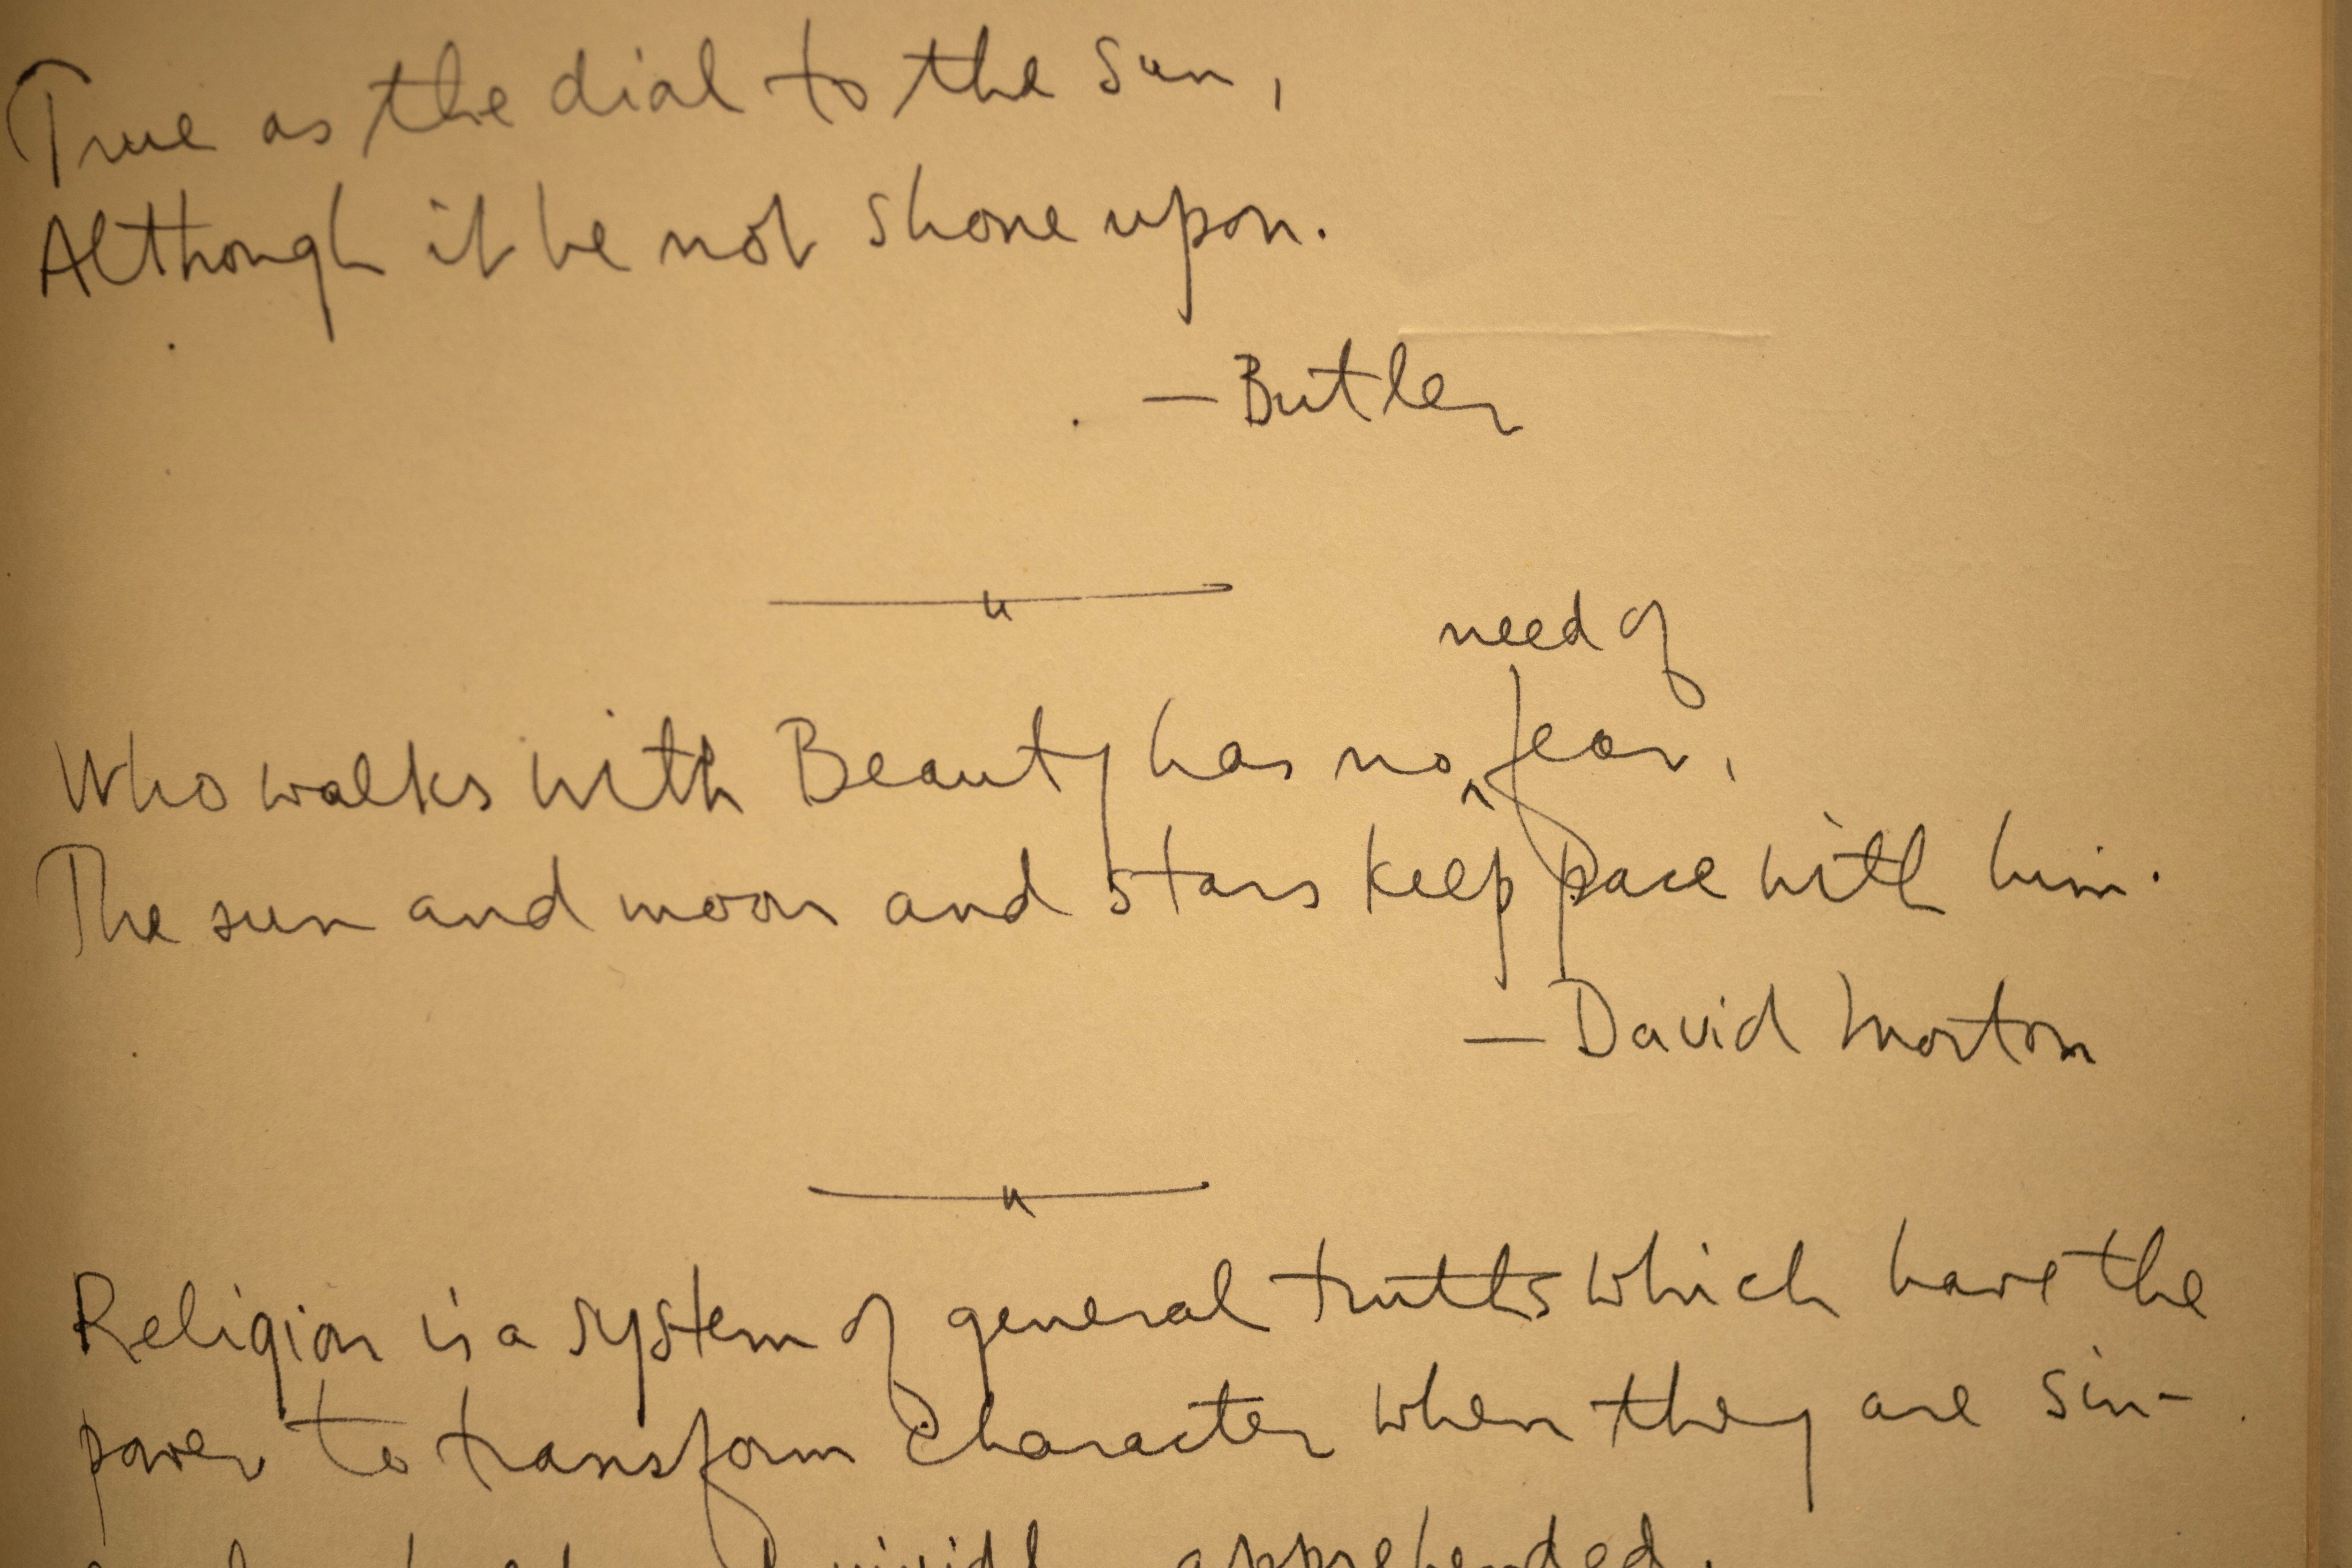 True as the dial to the sun,
Although it be not shone upon.
— Butler
need of
Who walks with Beauty has no ‸ fear,
The sun and moon and stars keep pace with him.
— David Morton
Religion is a system of general truths which have the
power to transform character when they are sin-
vividly apprehended.